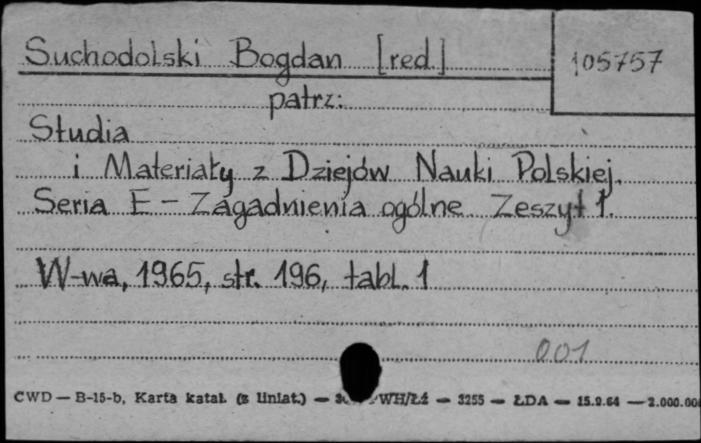 Suchodolski Bogdan [red]
105757
patrz:
Studia
i Materiały z Dziejów Nauki Polskiej.
Seria E - Zagadnienia ogólne. Zeszyt 1.
W-wa, 1965, str. 196, tabl. 1
001
CWD — B-15-b, Karta katal. (z liniat.) — WH/Łź — 3255 — ŁDA — 15.9.64 — 2.000.00